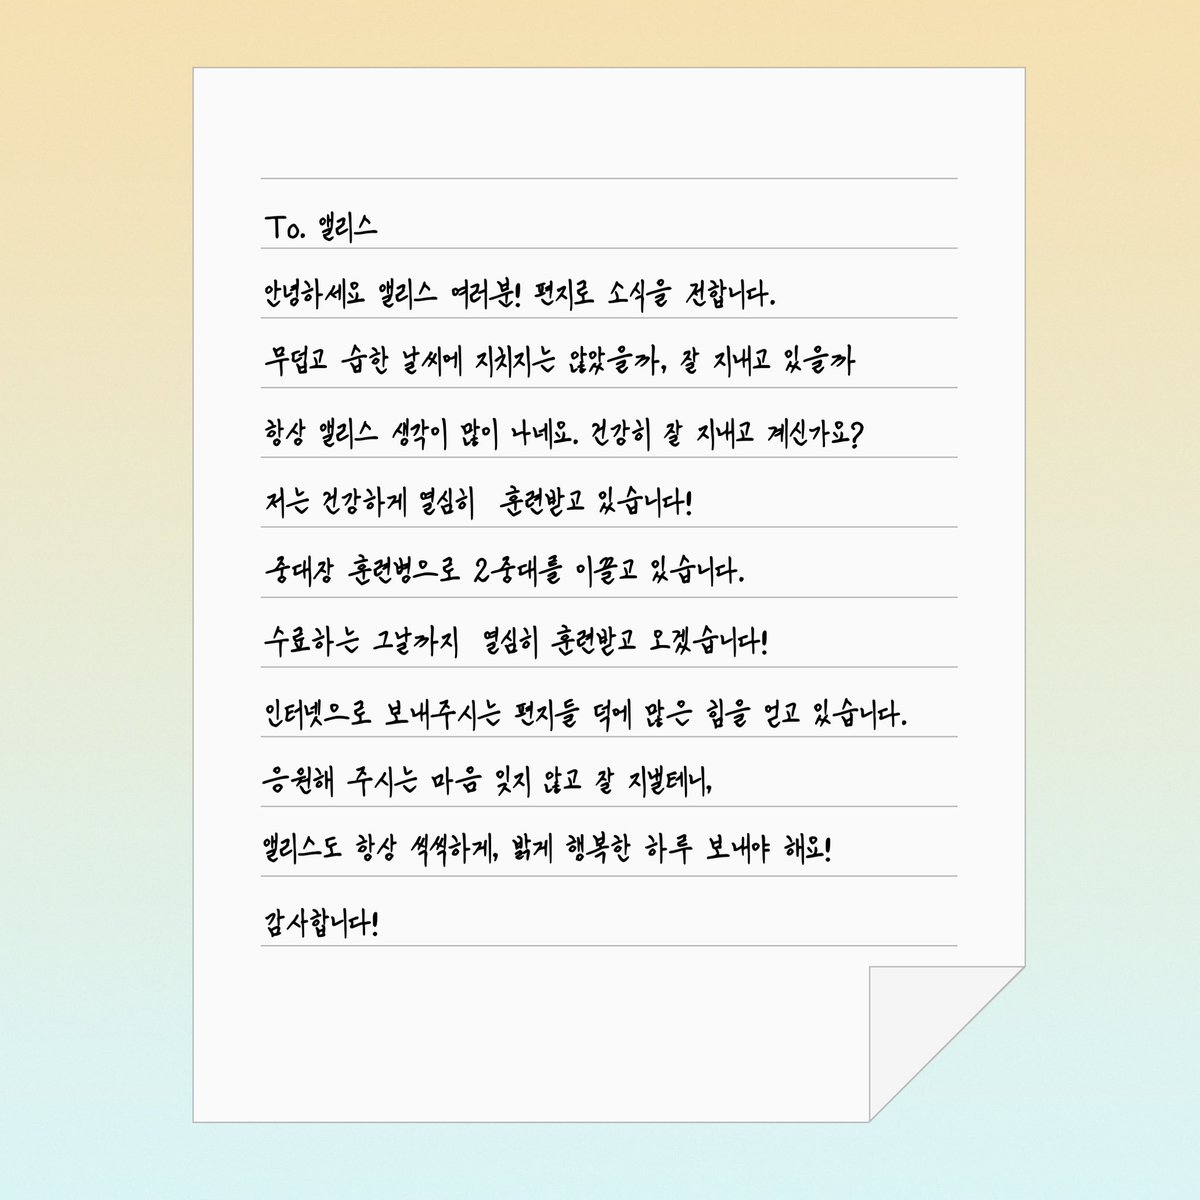 To. 앨리스
안녕하세요 앨리스 여러분! 편지로 소식을 전합니다.
무덥고 습한 날씨에 지치지는 않았을까, 잘 지내고 있을까
항상 앨리스 생각이 많이 나네요. 건강히 잘 지내고 계신가요?
저는 건강하게 열심히 훈련받고 있습니다!
중대장 훈련병으로 2중대를 이끌고 있습니다.
수료하는 그날까지 열심히 훈련받고 오겠습니다!
인터넷으로 보내주시는 편지들 덕에 많은 힘을 얻고 있습니다.
응원해 주시는 마음 잊지 않고 잘 지낼테니,
앨리스도 항상 씩씩하게, 밝게 행복한 하루 보내야 해요!
감사합니다!